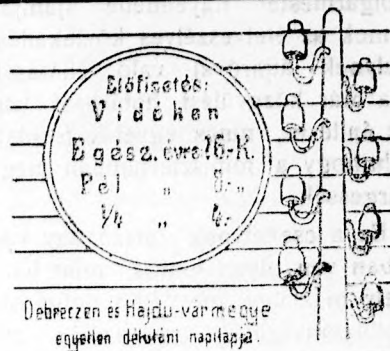 Előfizetés:
Vidéken
Egész évre 16.-K
Fél „ 8.-„
¼ „ 4.-
Debreczen és Hajdu-vármegye
egyetlen délutáni napilapja